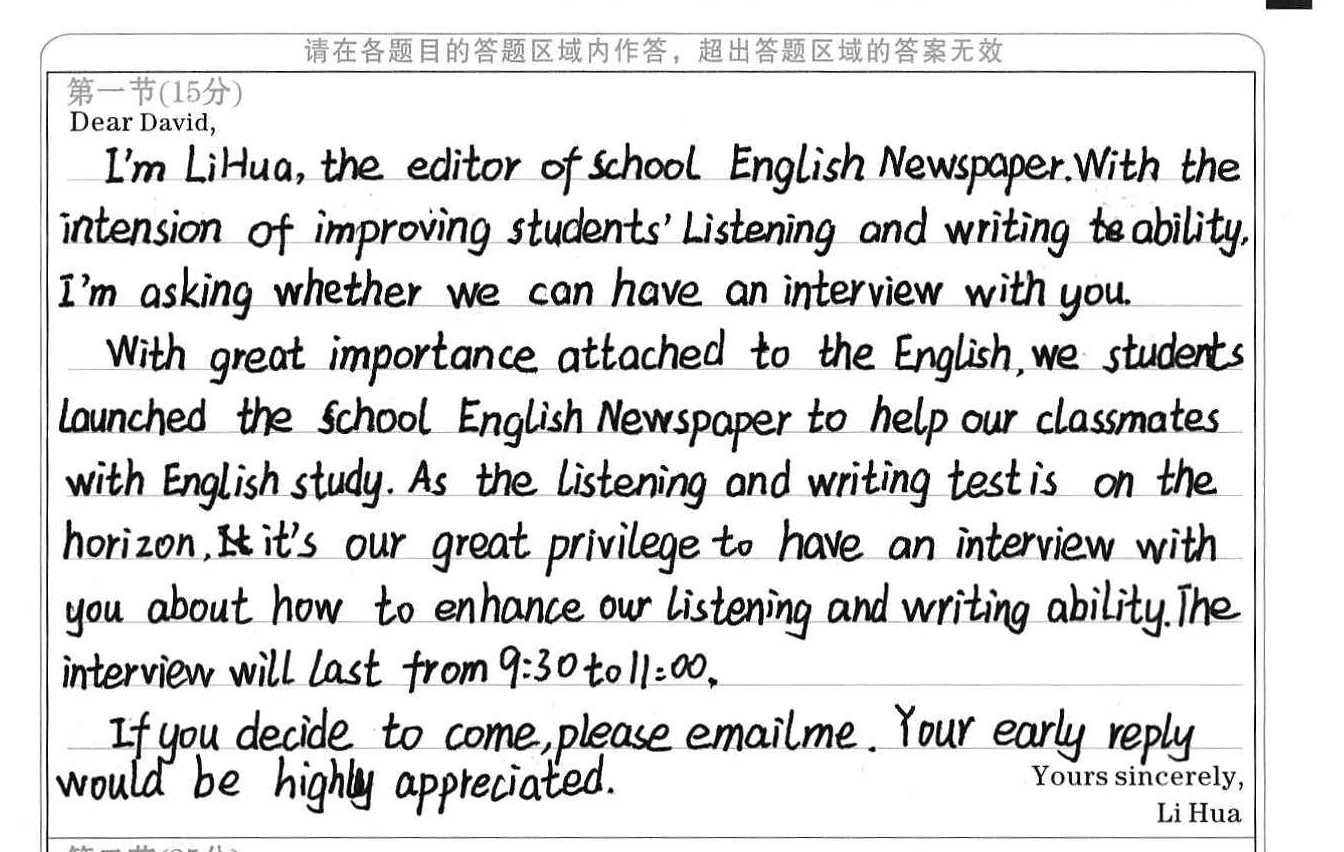 请在各题目的答题区域内作答，超出答题区域的答案无效
第一节(15分)
Dear David,
I'm Li Hua, the editor of School English Newspaper. With the
intension of improving students' Listening and writing ability,
I'm asking whether we can have an interview with you.
With great importance attached to the English, we students
launched the School English Newspaper to help our classmates
with English study. As the listening and writing test is on the
horizon, it's our great privilege to have an interview with
you about how to enhance our listening and writing ability. The
interview will last from 9:30 to 11:00.
If you decide to come, please email me. Your early reply
would be highly appreciated.
Yours sincerely,
Li Hua